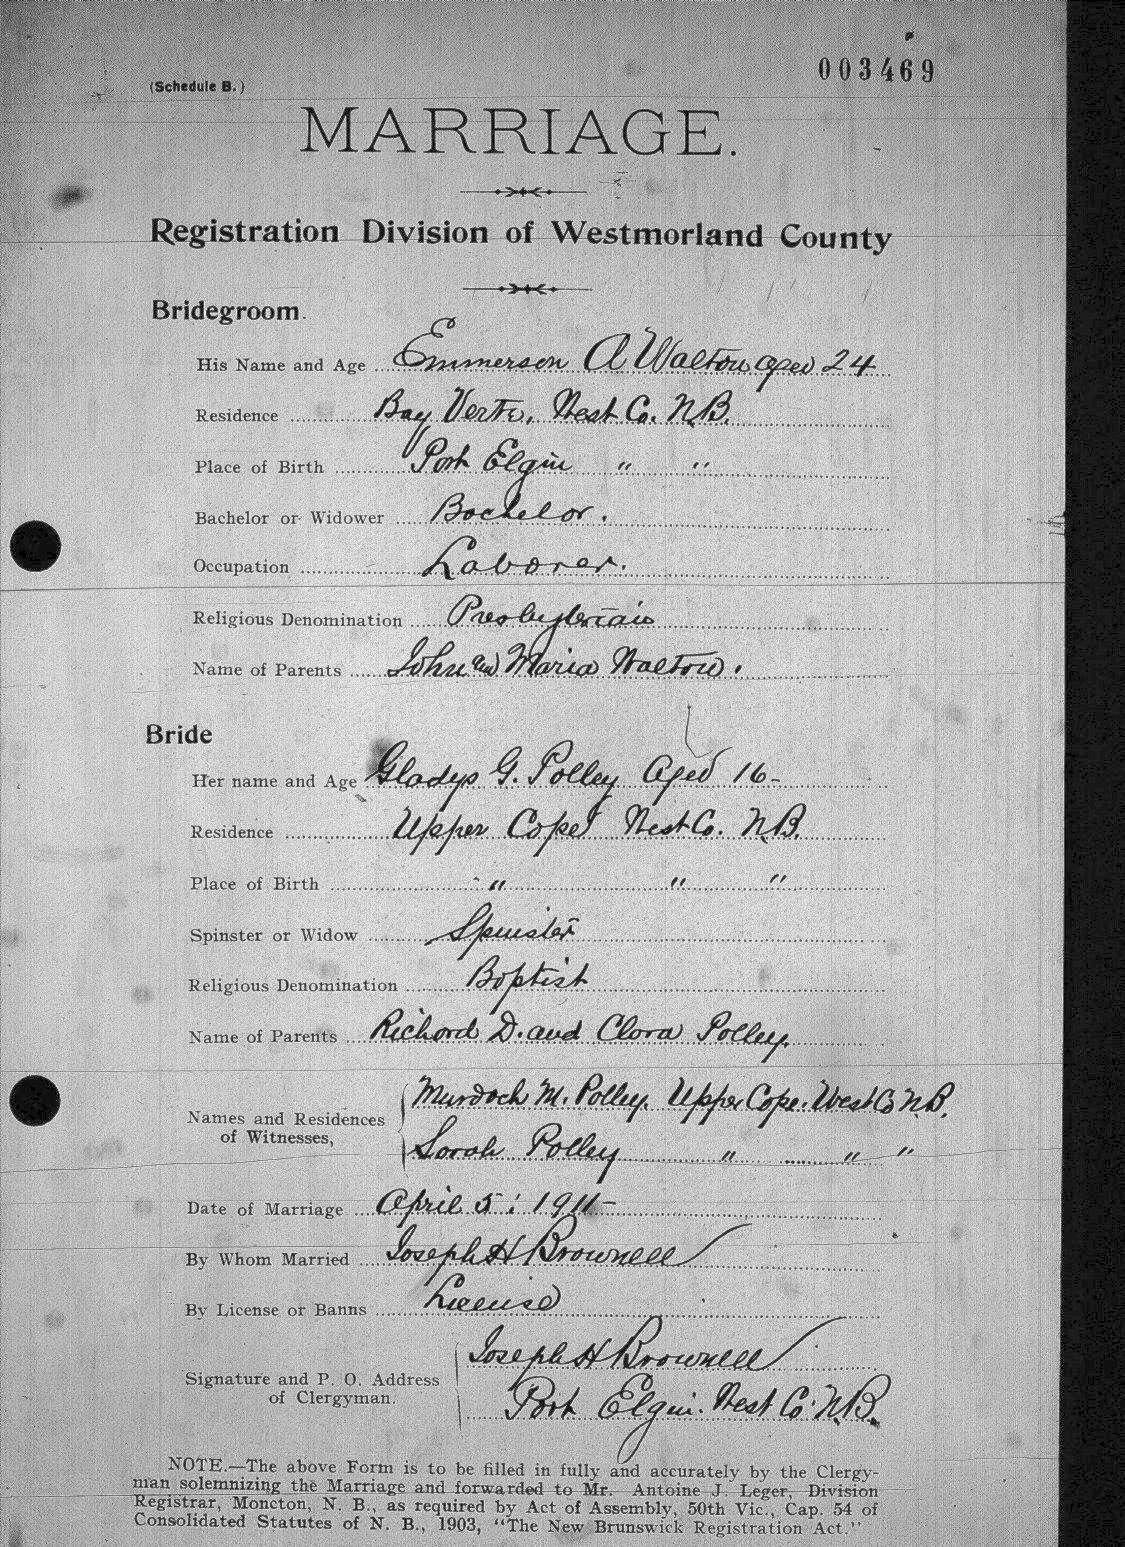 003469
(Schedule B.)
MARRIAGE.
Registration Division of Westmorland County
Bridegroom.
His Name and Age Emmerson A Walton aged 24
Residence Bay Verte, West Co. N.B.
Place of Birth Port Elgin " "
Bachelor or Widower Bachelor.
Occupation Laborer.
Religious Denomination Presbyterian
Name of Parents John and Maria Walton.
Bride
Her name and Age Gladys G. Polley Aged 16-
Residence Upper Cape West Co. N.B.
Place of Birth " " "
Spinster or Widow Spinster
Religious Denomination Baptist
Name of Parents Richard D. and Clara Polley.
Names and Residences of Witnesses, Murdoch M. Polley. Upper Cape. West Co N.B.
Sarah Polley " " "
Date of Marriage April 5: 1911-
By Whom Married Joseph H Brownell
By License or Banns License
Signature and P. O. Address of Clergyman. Joseph H Brownell
Port Elgin. West Co. N.B.
NOTE.—The above Form is to be filled in fully and accurately by the Clergy-
man solemnizing the Marriage and forwarded to Mr. Antoine J. Leger, Division
Registrar, Moncton, N. B., as required by Act of Assembly, 50th Vic., Cap. 54 of
Consolidated Statutes of N. B., 1903, "The New Brunswick Registration Act."